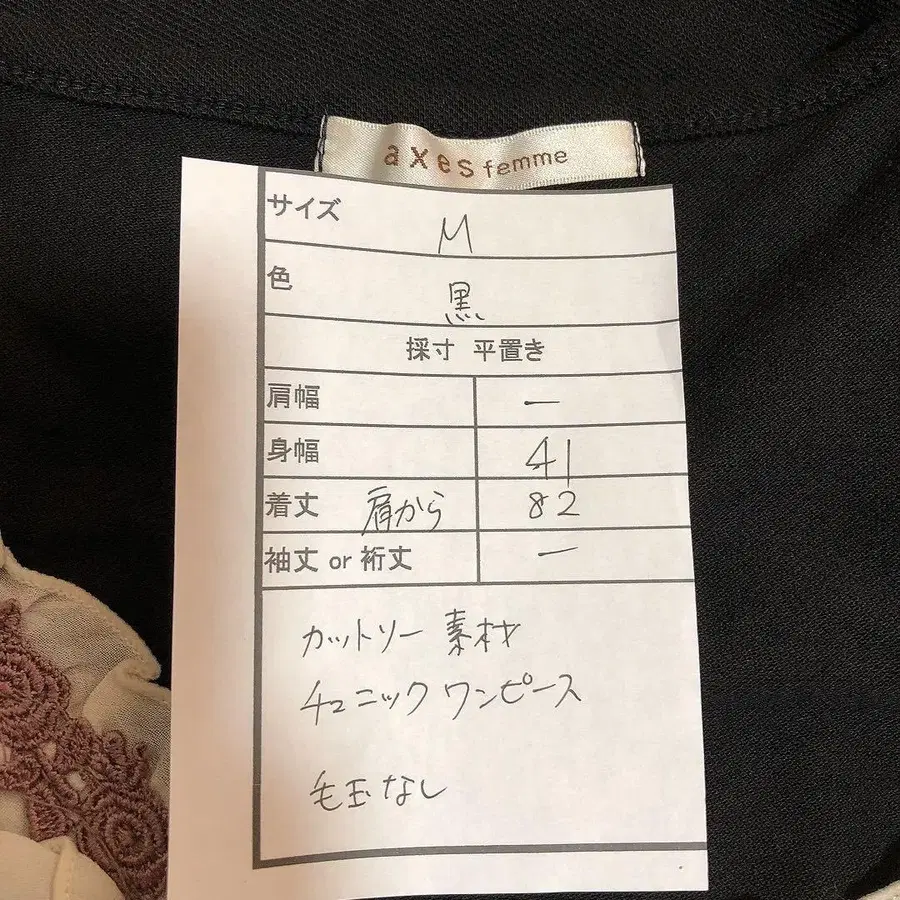 axes femme
サイズ M
色 黒
採寸 平置き
肩幅 ー
身幅 41
着丈 肩から 82
袖丈 or 裄丈 ー
カットソー 素材
チュニック ワンピース
毛玉なし